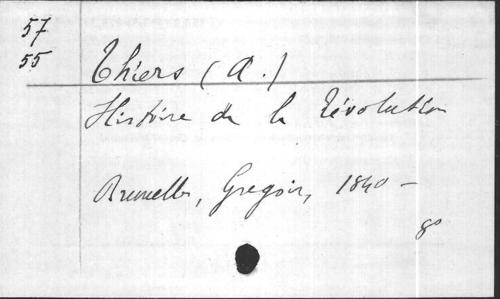 57
55
Thiers (A.)
Histoire de la Révolution
Bruxelles, Gregoir, 1840 –
8°